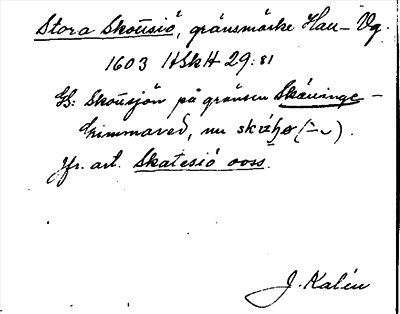 Stora Skousiö, gränsmärke Hall–Vg.
1603 HSkH 29:81
Ls: Skousjön på gränsen Skällinge–
Kimmared, nu
Jfr. art. Skatesiö ovss.
J. Kalén